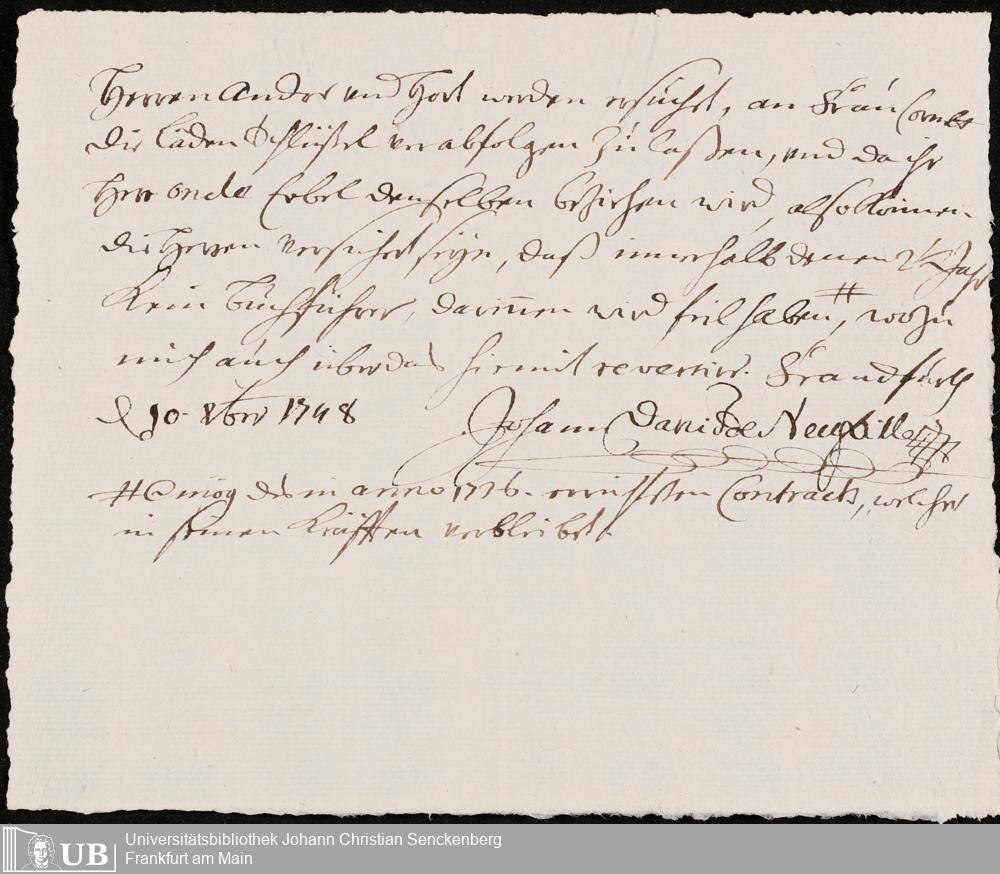 Herren Andre und Hort werden ersucht, an Frau
die Läden Schlüßel verabfolgen zu laßen, und da ihr
Herr oncle Eobel denselben beziehen wird, also können
die Herren versichert seyn, daß innerhalb denen Jahr
Kein Buchführer, darinnen wird feil haben #, wozu
mich auch über das hiemit reversire. Franckfurth
d 10. 8br 1748 Johann David de Neufville
# mög des in anno 1736. errichteten Contracts, welcher
in seinen Kräfften verbleibet.
Universitätsbibliothek Johann Christian Senckenberg
UB Frankfurt am Main